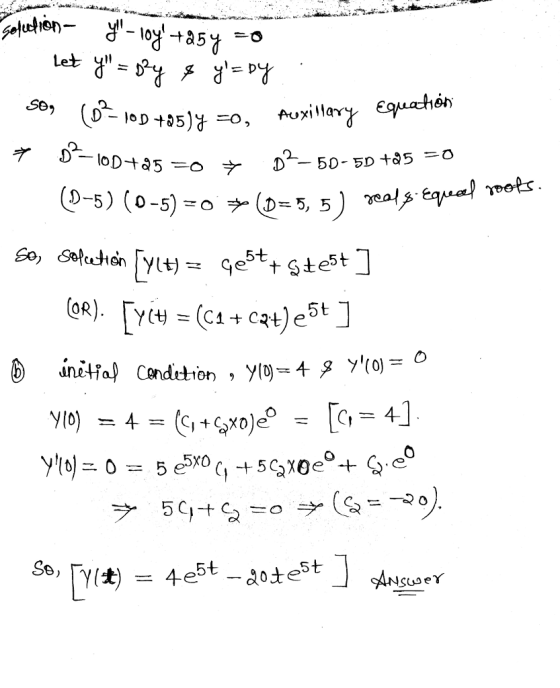 Solution - y'' - 10y' + 25y = 0
Let y'' = D²y & y' = Dy
So, (D² - 10D + 25)y = 0, Auxillary Equation
⇒ D² - 10D + 25 = 0 ⇒ D² - 5D - 5D + 25 = 0
(D-5) (D-5) = 0 ⇒ (D = 5, 5) real & Equal roots.
So, Solution [Y(t) = C₁e^5t + C₂te^5t]
(OR). [Y(t) = (C1 + C2t)e^5t]
(b) initial Condition, Y(0) = 4 & Y'(0) = 0
Y(0) = 4 = (C₁ + C₂x0)e^0 = [C₁ = 4].
Y'(0) = 0 = 5e^5x0 C₁ + 5C₂x0e^0 + C₂.e^0
⇒ 5C₁ + C₂ = 0 ⇒ (C₂ = -20).
So, [Y(t) = 4e^5t - 20te^5t] Answer